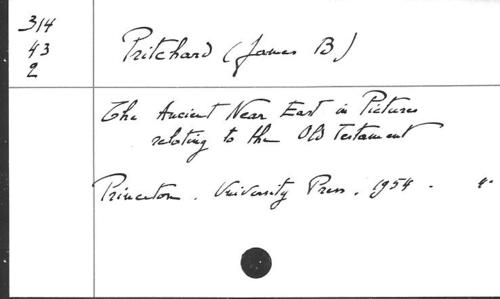 314
43
2
Pritchard (James B)
The Ancient Near East in Pictures
relating to the Old Testament
Princeton. University Press. 1954. 4°